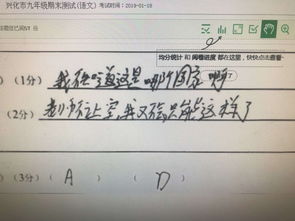 兴化市九年级期末测试(语文) 考试时间：2019-01-18
均分统计 和 阅卷进度 都在这里，快快点击查看~
(1分) 我征道这是哪个国家啊
(2分) 老师不让空，我又不会只能这样了
) (3分) ( A ) ( D )